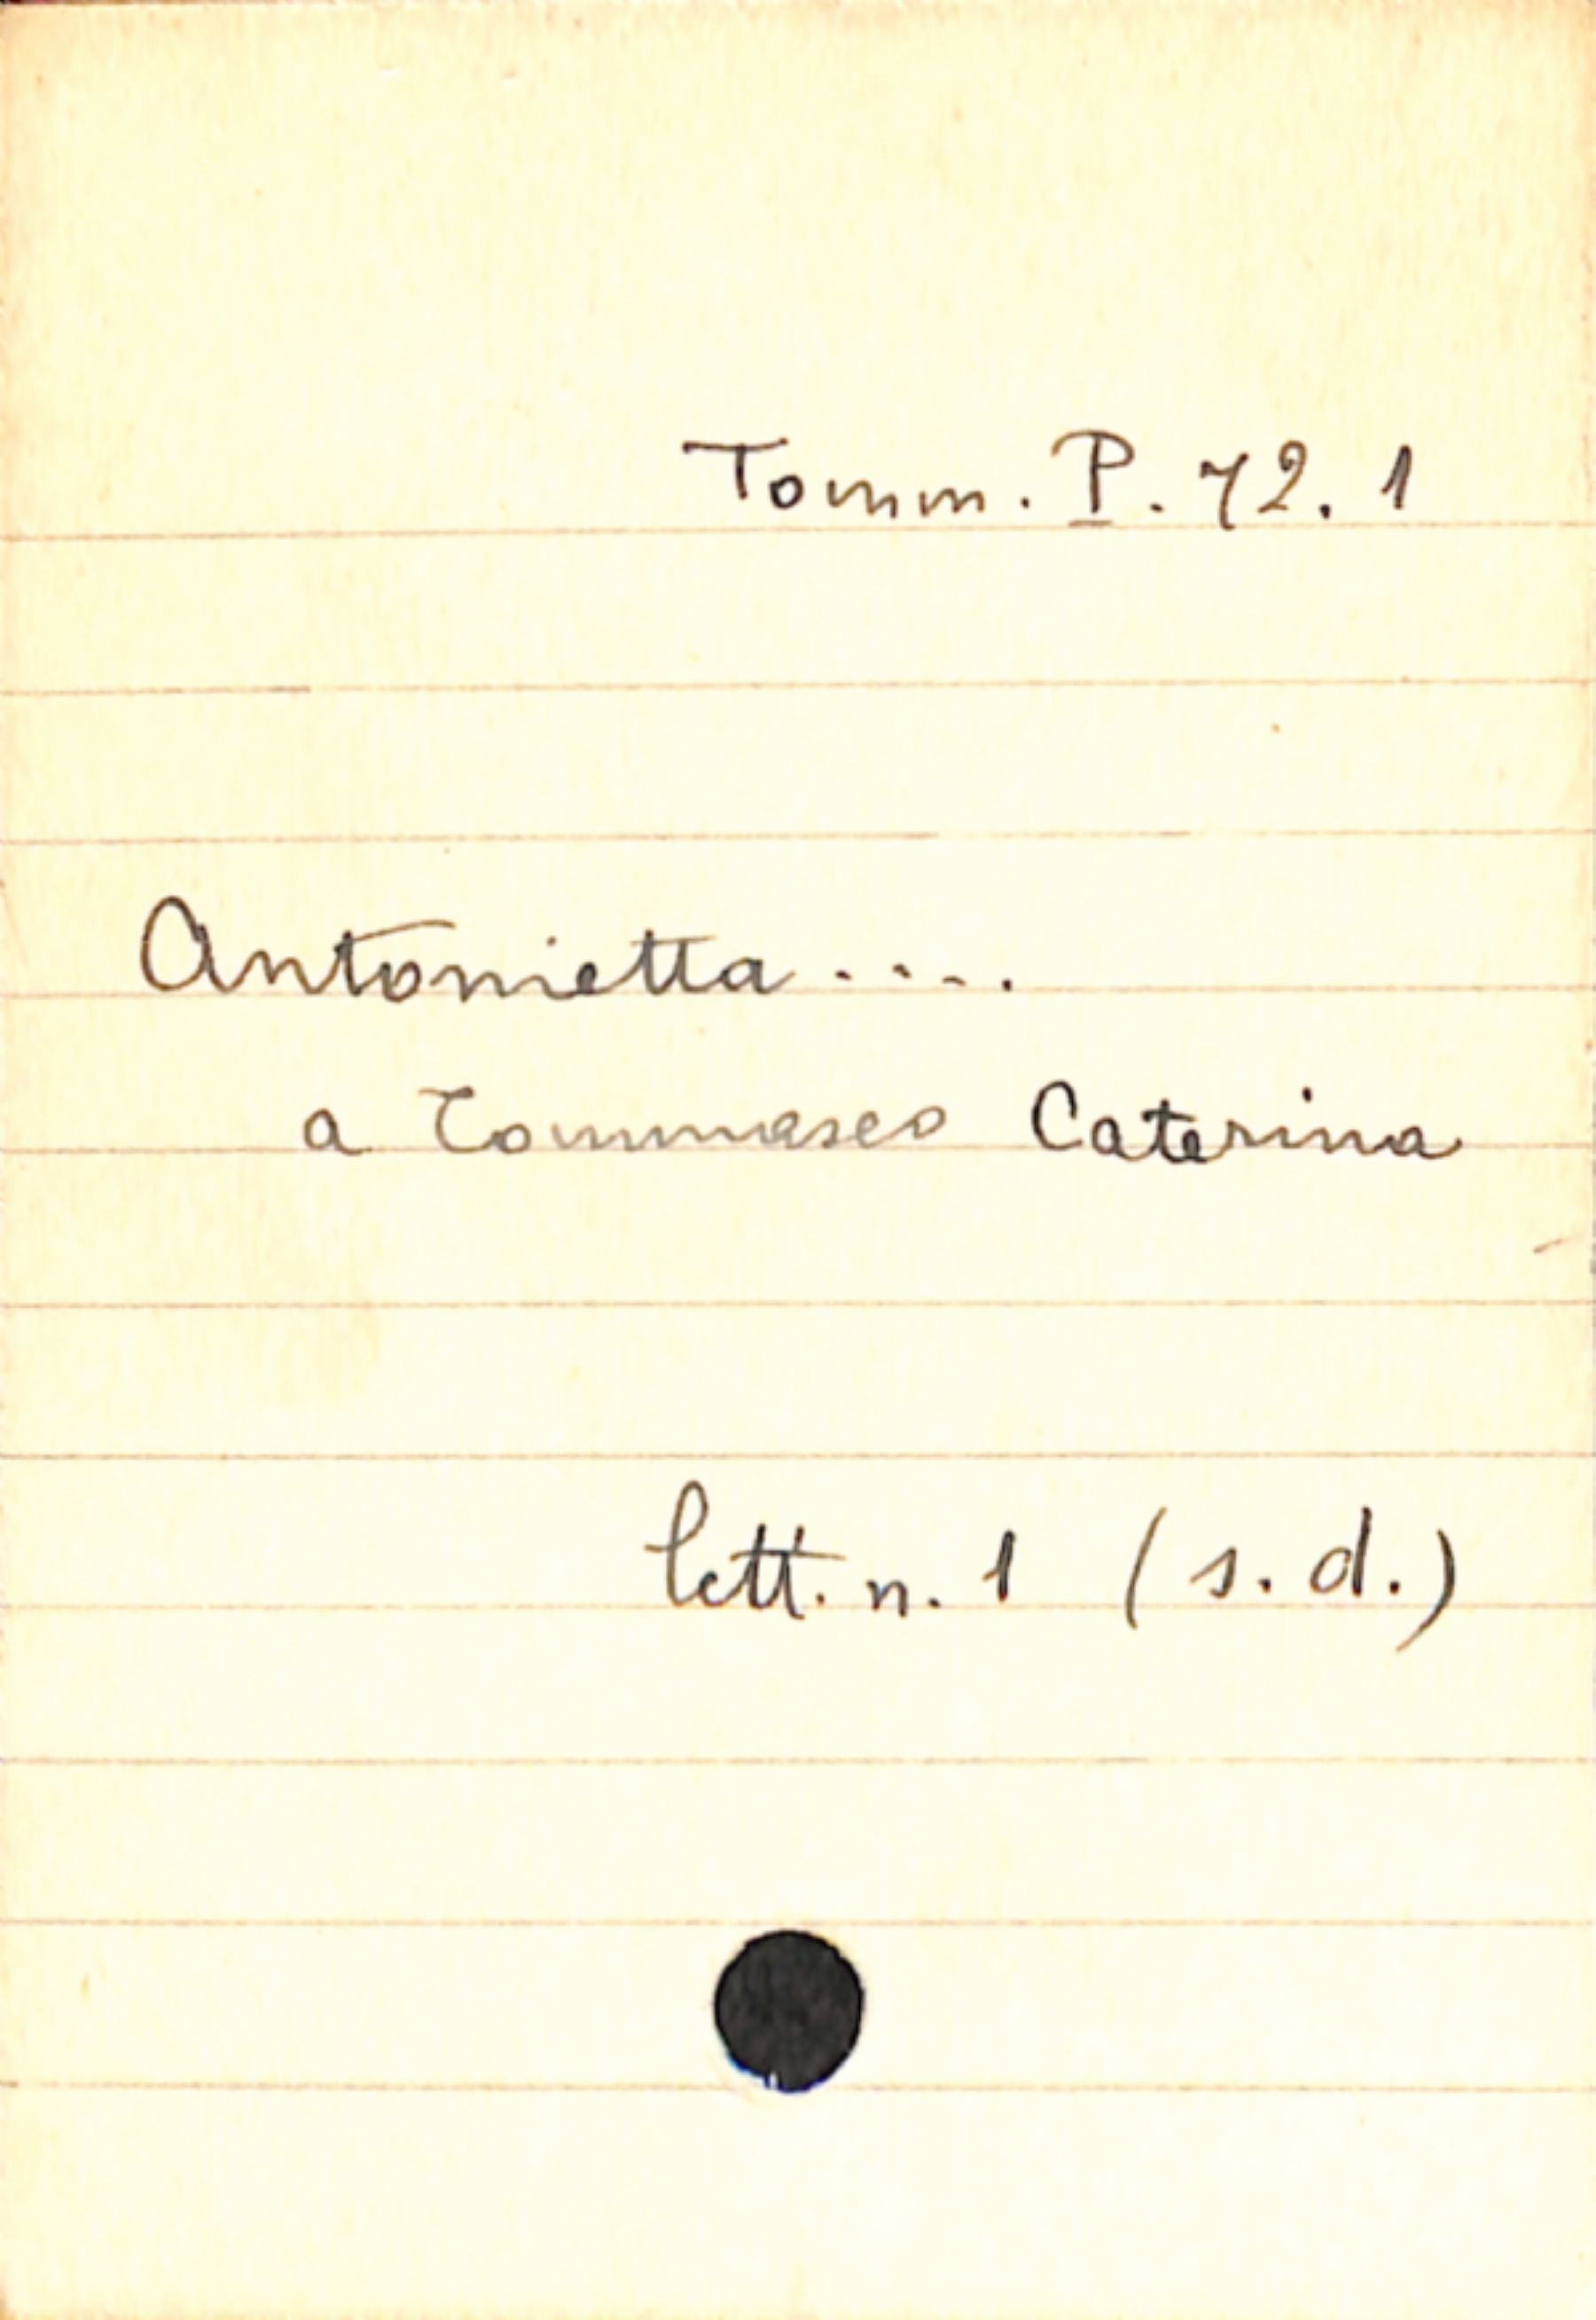 Tomm. P. 72. 1
Antonietta.....
a Tommaseo Caterina
lett. n. 1 (s. d.)